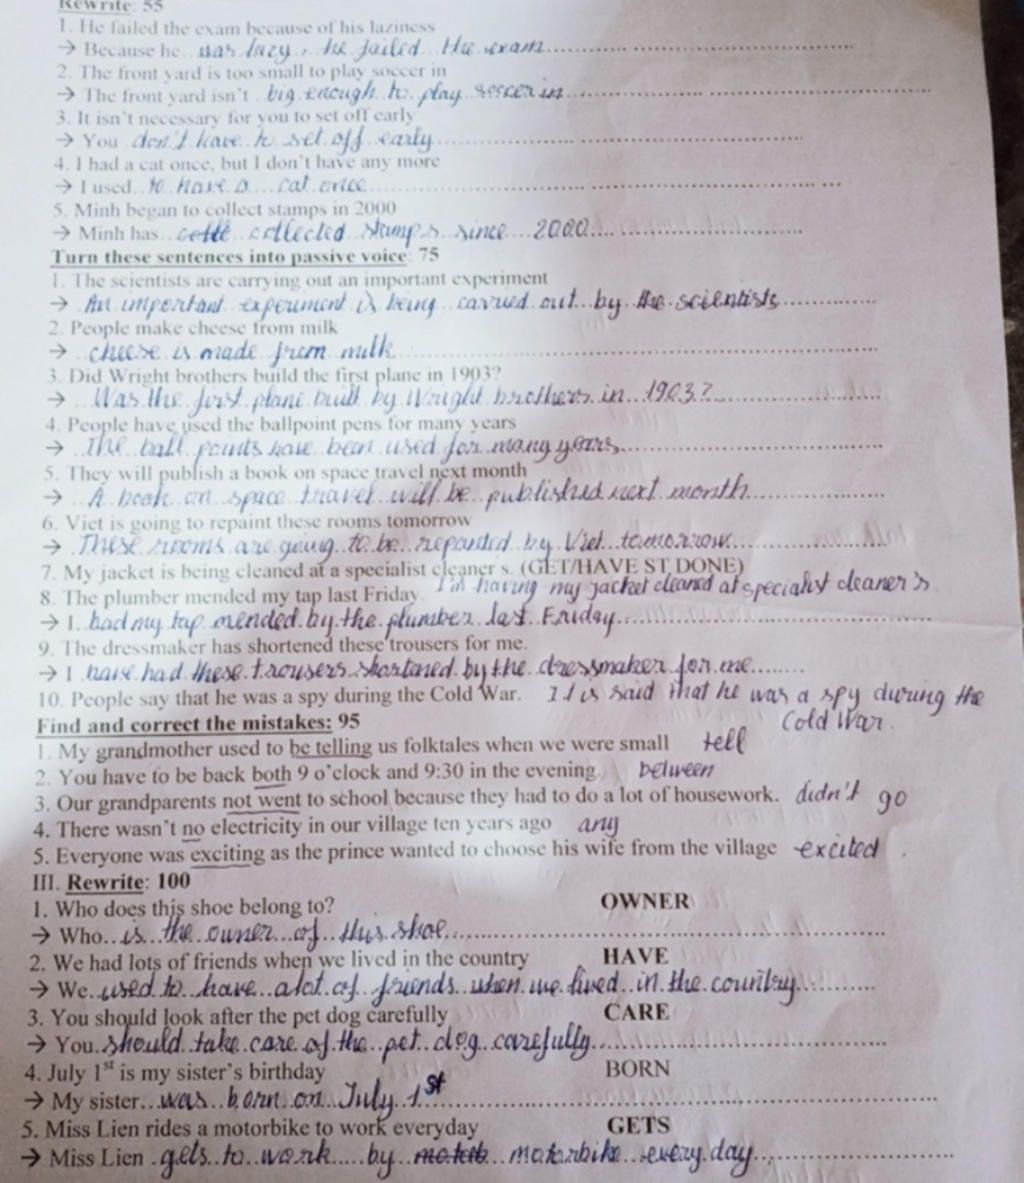 Rewrite: 55
1. He failed the exam because of his laziness
→ Because he was lazy, he failed the exam
2. The front yard is too small to play soccer in
→ The front yard isn't big enough to play soccer in
3. It isn't necessary for you to set off early
→ You don't have to set off early
4. I had a cat once, but I don't have any more
→ I used to have a cat once
5. Minh began to collect stamps in 2000
→ Minh has collected stamps since 2000
Turn these sentences into passive voice: 75
1. The scientists are carrying out an important experiment
→ An important experiment is being carried out by the scientists
2. People make cheese from milk
→ cheese is made from milk
3. Did Wright brothers build the first plane in 1903?
→ Was the first plane built by Wright brothers in 1903?
4. People have used the ballpoint pens for many years
→ The ball points have been used for many years
5. They will publish a book on space travel next month
→ A book on space travel will be published next month
6. Viet is going to repaint these rooms tomorrow
→ These rooms are going to be repainted by Viet tomorrow
7. My jacket is being cleaned at a specialist cleaner s. (GET/HAVE ST DONE)
I'm having my jacket cleaned at specialist cleaner's
8. The plumber mended my tap last Friday.
→ I had my tap mended by the plumber last Friday
9. The dressmaker has shortened these trousers for me.
→ I have had these trousers shortened by the dressmaker for me
10. People say that he was a spy during the Cold War. It is said that he was a spy during the
Cold War.
Find and correct the mistakes: 95
1. My grandmother used to be telling us folktales when we were small tell
2. You have to be back both 9 o'clock and 9:30 in the evening. between
3. Our grandparents not went to school because they had to do a lot of housework. didn't go
4. There wasn't no electricity in our village ten years ago any
5. Everyone was exciting as the prince wanted to choose his wife from the village excited.
III. Rewrite: 100
1. Who does this shoe belong to? OWNER
→ Who is the owner of this shoe
2. We had lots of friends when we lived in the country HAVE
→ We used to have a lot of friends when we lived in the country
3. You should look after the pet dog carefully CARE
→ You should take care of the pet dog carefully
4. July 1st is my sister's birthday BORN
→ My sister was born on July 1st
5. Miss Lien rides a motorbike to work everyday GETS
→ Miss Lien gets to work by motorbike every day